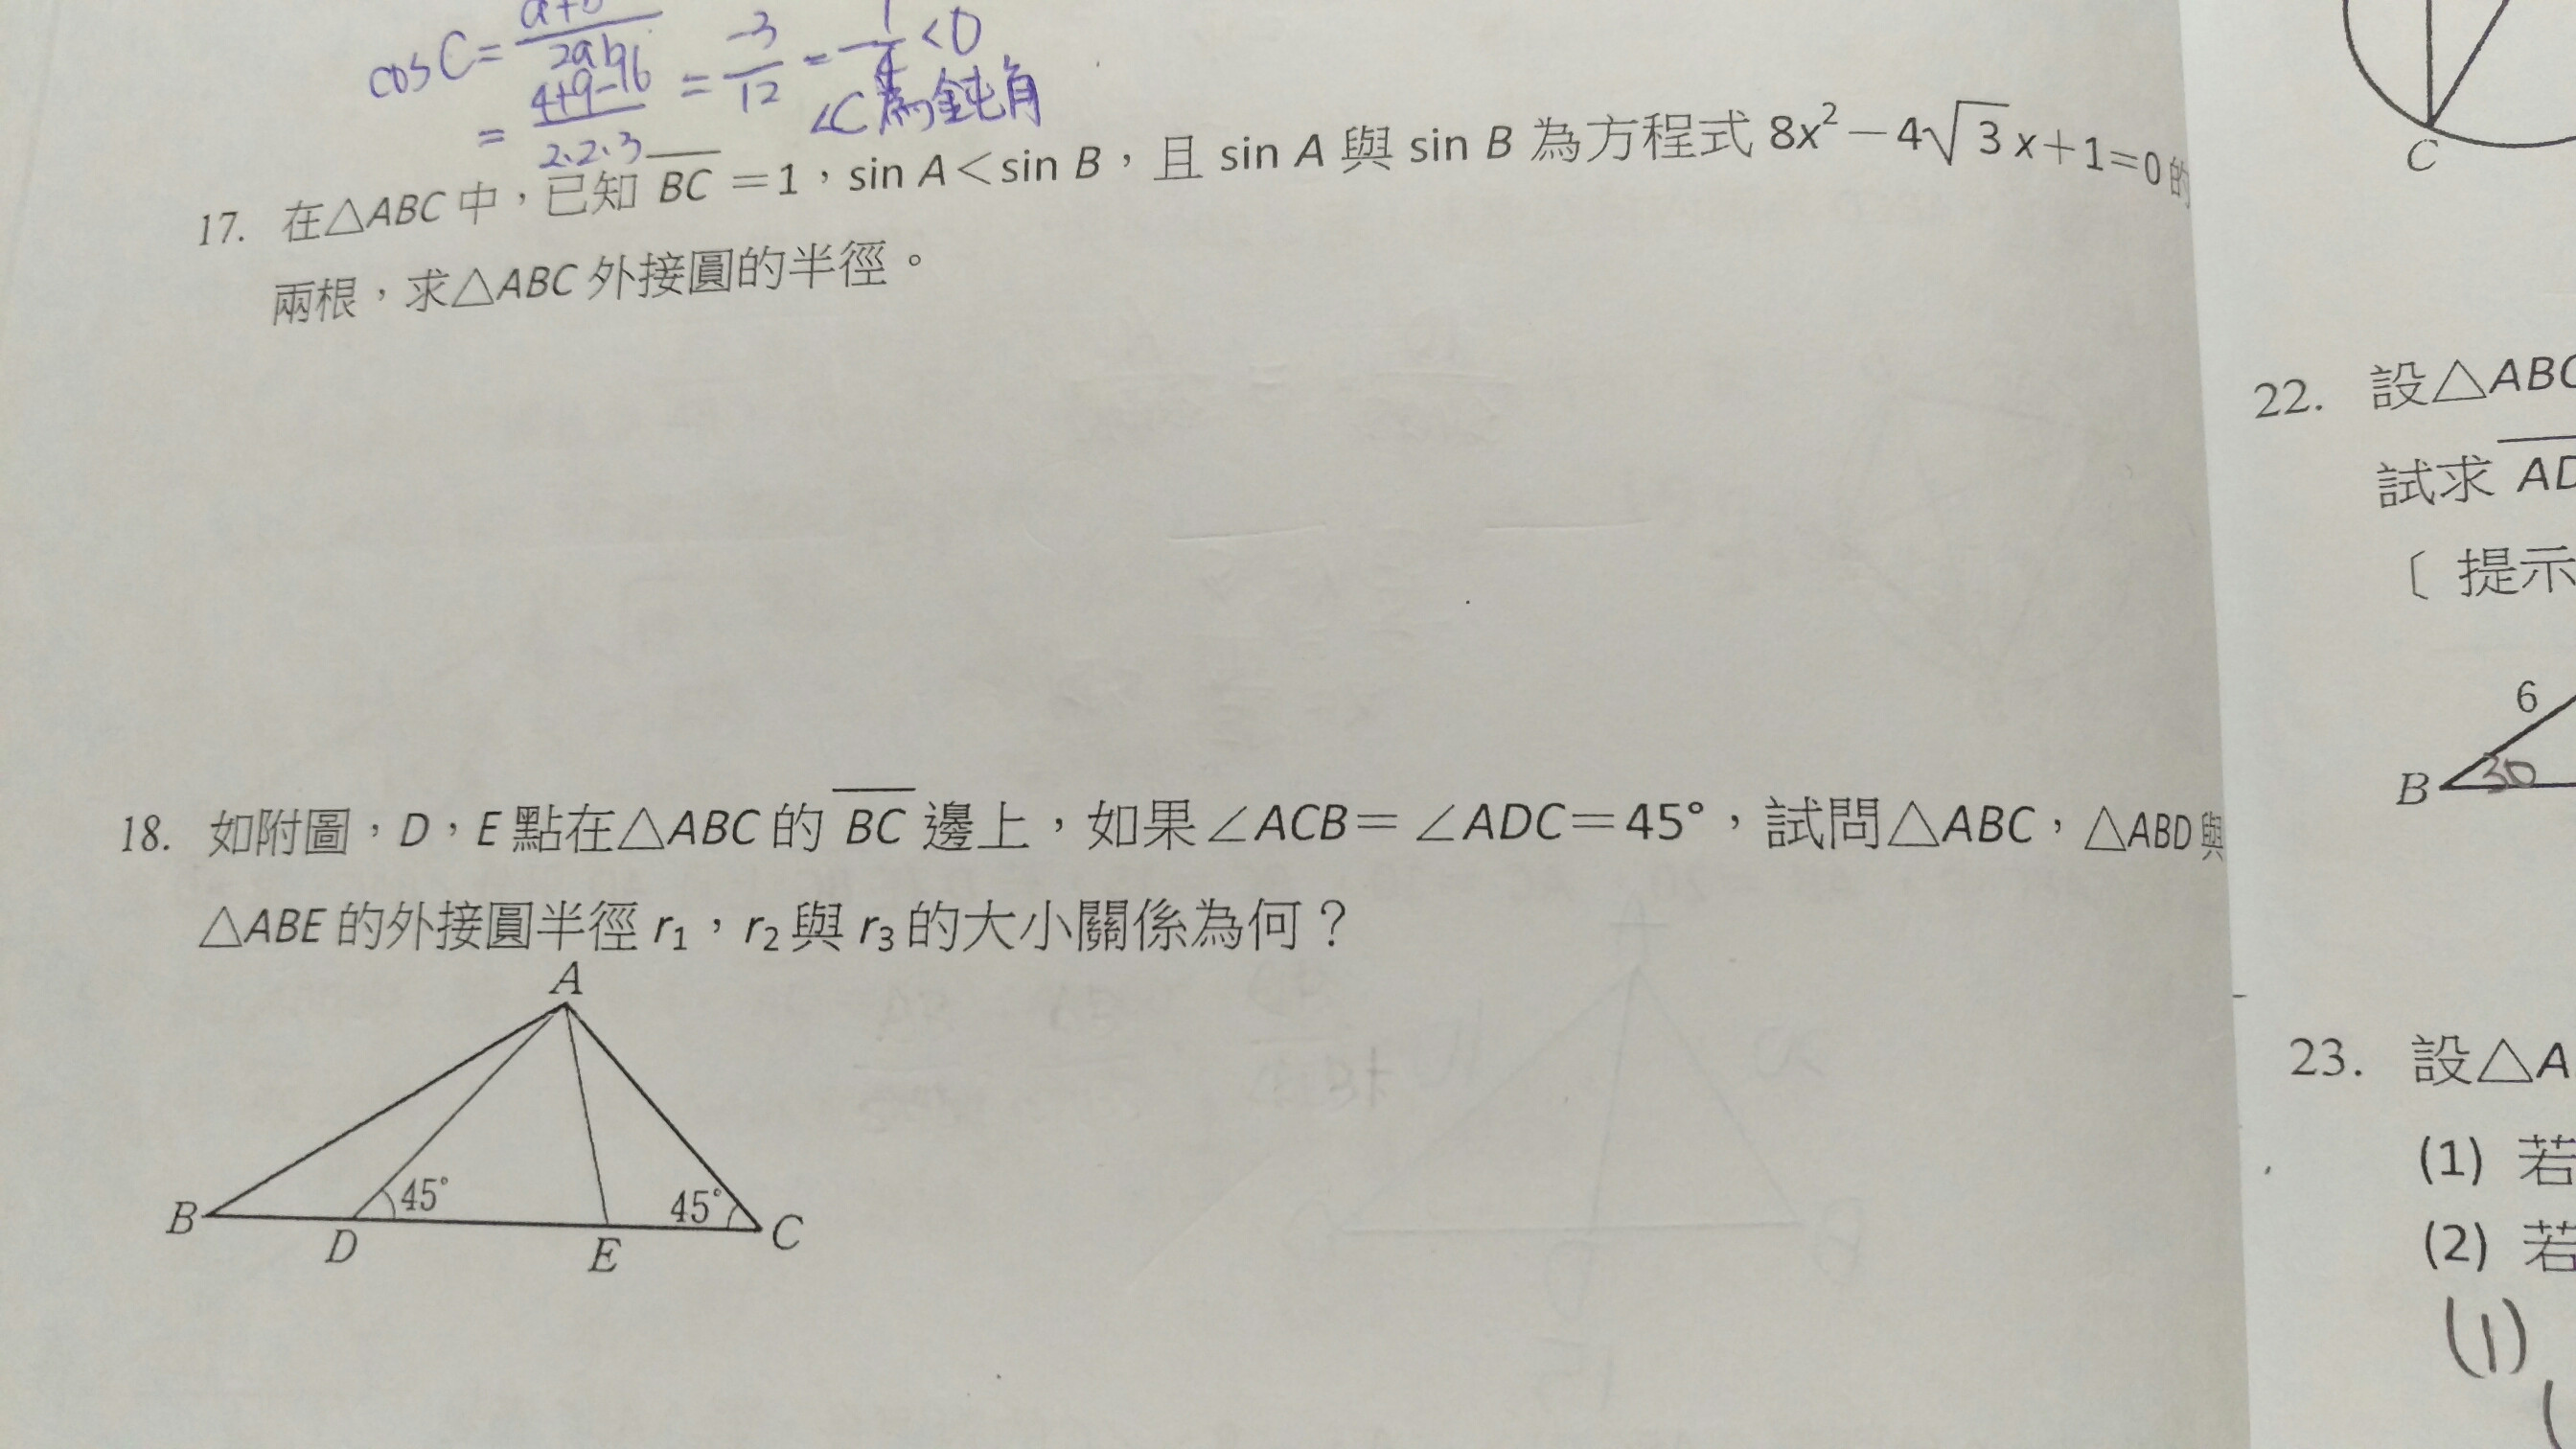 cos C =
2ab
= 4+9-16 / 2.2.3 = -3/12 = -1/4 <0
∠C為鈍角
17. 在△ABC 中，已知 BC＝1，sin A＜sin B，且 sin A 與 sin B 為方程式 8x²－4√3x＋1＝0 的
兩根，求△ABC 外接圓的半徑。
18. 如附圖，D，E 點在△ABC 的 BC 邊上，如果∠ACB＝∠ADC＝45°，試問△ABC，△ABD 與
△ABE 的外接圓半徑 r₁，r₂ 與 r₃ 的大小關係為何？
A
45°
45°
B
D
E
C
C
22. 設△ABC
試求 AD
〔 提示
6
B
30
23. 設△A
(1) 若
(2) 若
(1)
(